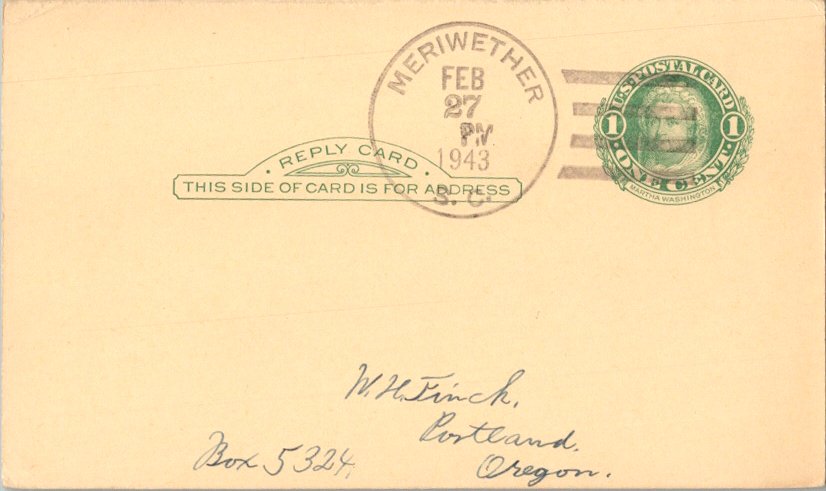 MERIWETHER
FEB
27
PM
1943
S. C.
U.S. POSTAL CARD
1 1
· ONE CENT ·
MARTHA WASHINGTON
· REPLY CARD ·
THIS SIDE OF CARD IS FOR ADDRESS
W. H. Finch,
Portland,
Box 5324, Oregon.